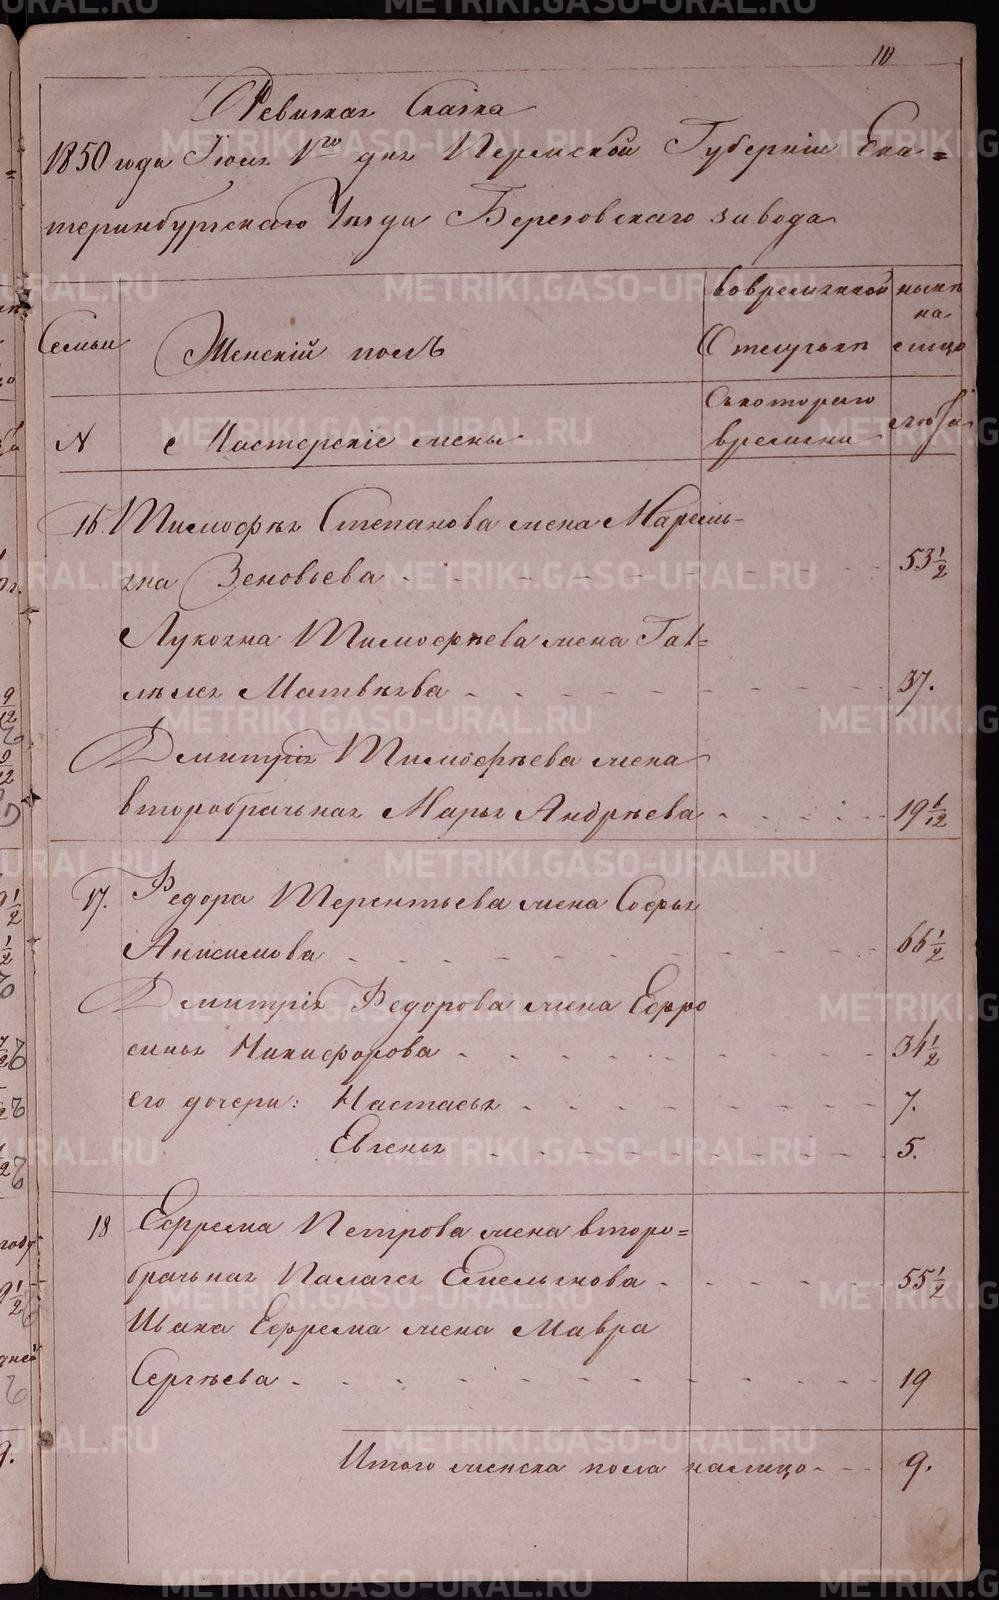 10
Ревизкая Сказка
1850 года Июня 1го дня Пермской Губерніи Ека=
теринбургскаго Уѣзда Березовскаго завода
Семьи
Женскій полъ
вовременной
Отлучькѣ
нынѣ
на
лицо
N
Мастерскіе жены
Скотораго
времени
лѣта
16. Тимофѣя Степанова жена Маремь-
яна Зеновьева 53 1/2
Лукояна Тимофѣева жена Гав=
Матвѣева 37.
Дмитрія Тимофѣева жена
второбрачьная Марья Андрѣева 19 6/12
17. Федора Терентьева жена Софья
Анисимова 66 1/2
Дмитрія Федорова жена Ефро
синья Никифорова 34 1/2
его дочери: Настасья 7.
Евгенья 5.
18 Ефрема Петрова жена второ=
брачьная Палагея Емельянова 55 1/2
Ивана Ефрема жена Мавра
Сергѣева 19
Итого женска пола налицо 9.
METRIKI.GASO-URAL.RU